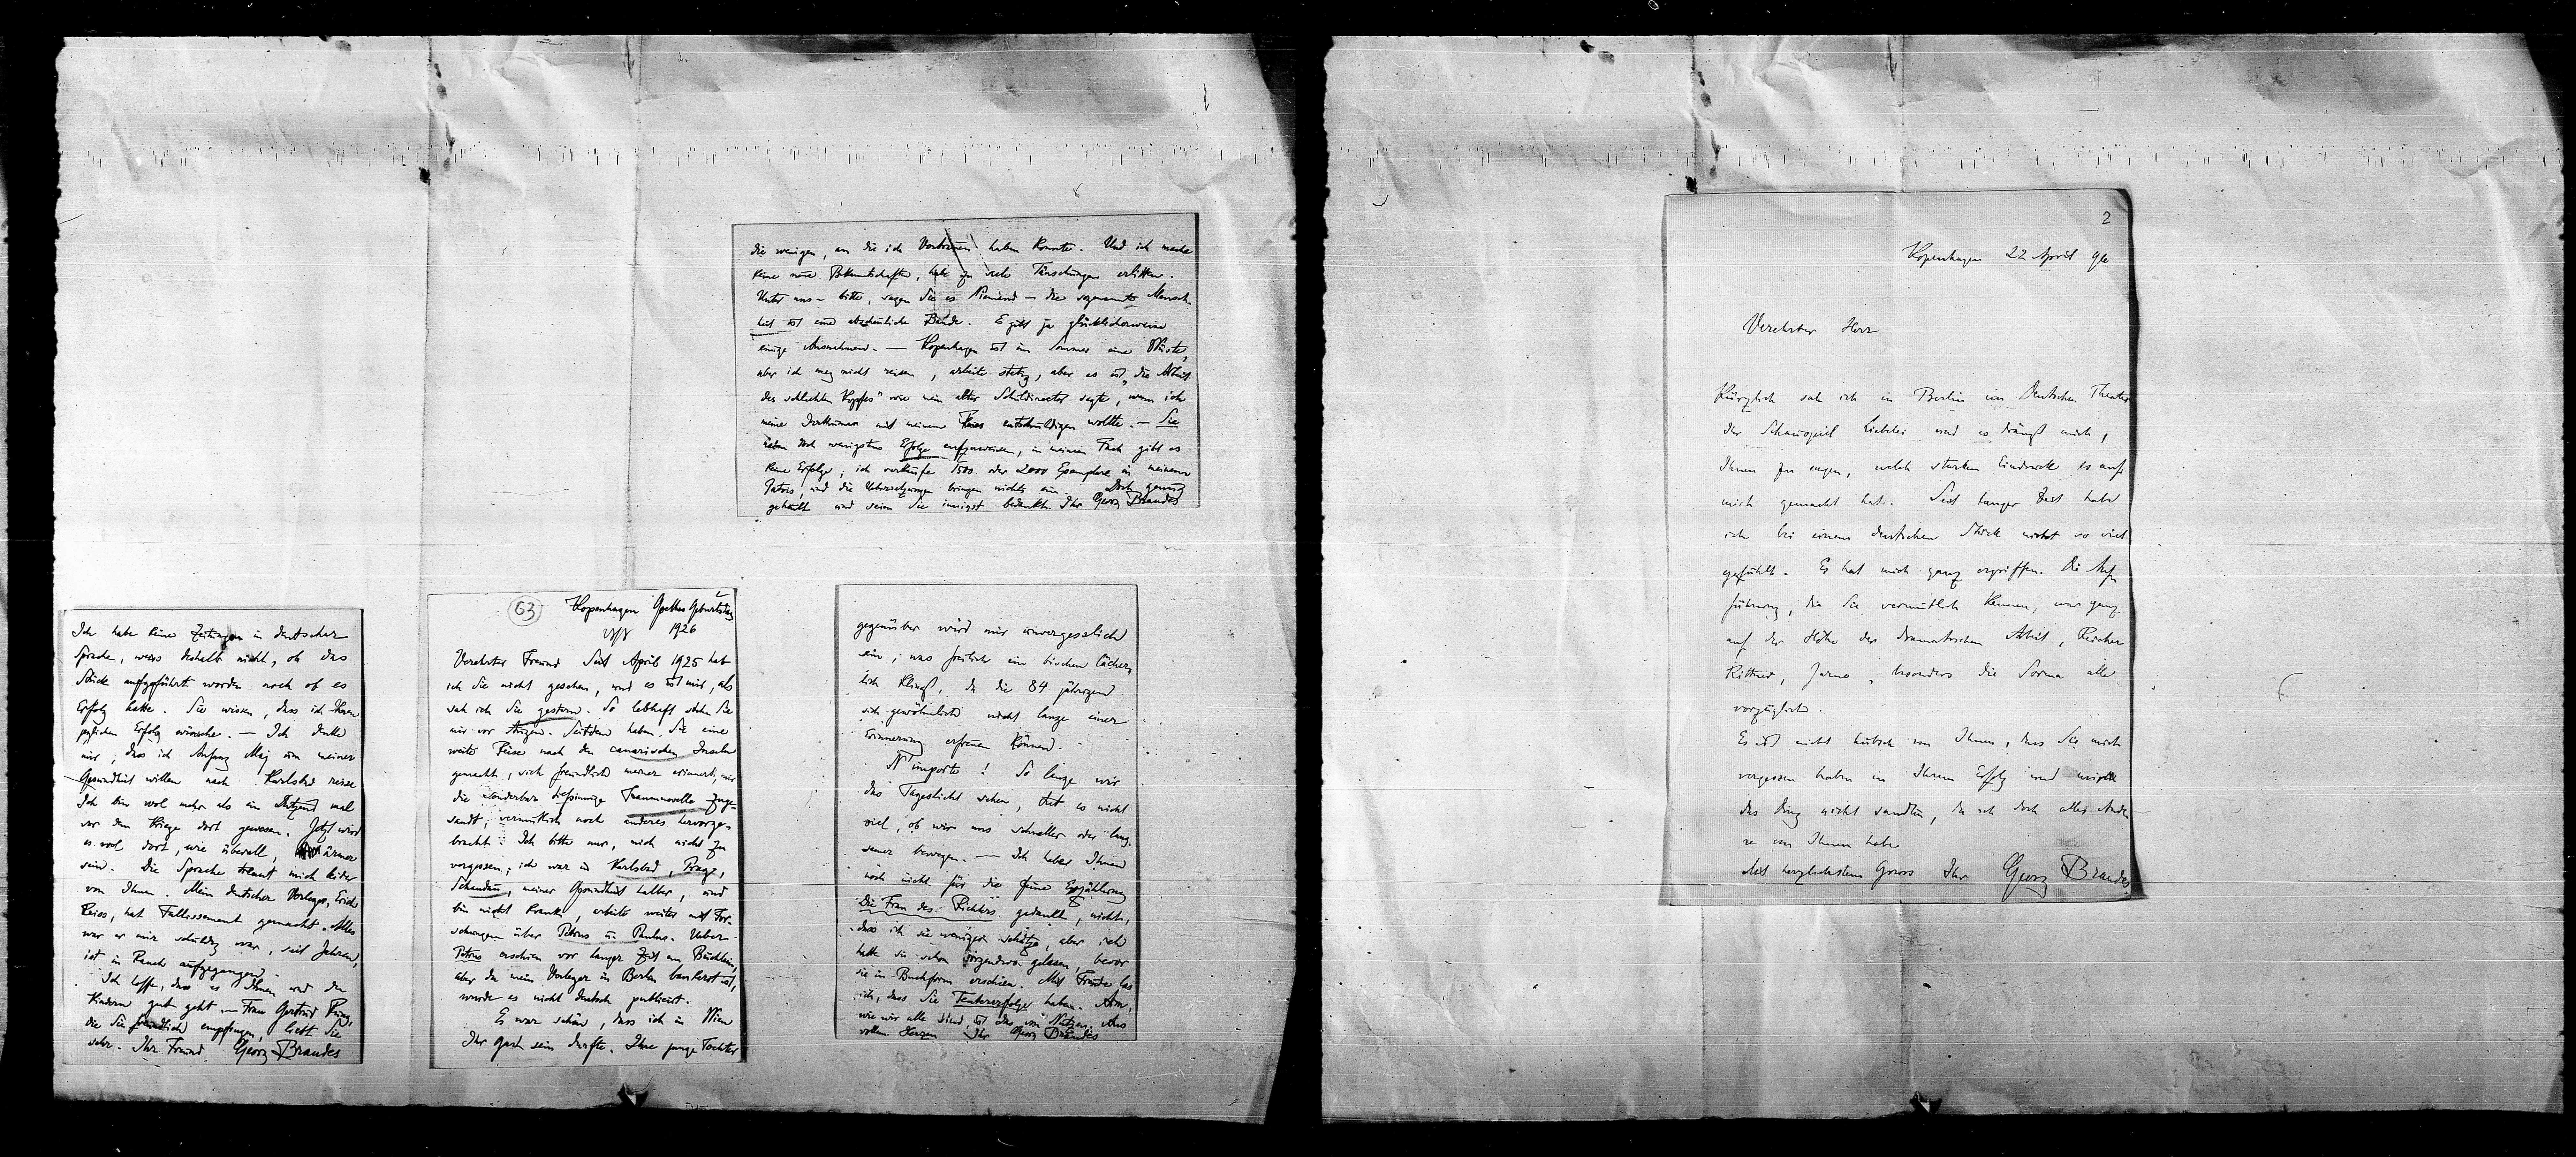 die wenigen, an die ich Vertrauen haben konnte. Und ich mache
keine neue Bekanntschaften, habe zu viele Täuschungen erlitten.
Unter uns – bitte, sagen Sie es Niemand – die sogenannte Mensch
heit ist eine abscheuliche Bande. Es gibt ja glücklicherweise
einige Ausnahmen. — Kopenhagen ist im Sommer eine Wüste,
aber ich mag nicht reisen, arbeite stetig, aber es ist „die Arbeit
des schlechten Kopfes" wie mein alter Schuldirector sagte, wenn ich
meine mit meinem Fleiss entschuldigen wollte. — Sie
haben doch wenigstens Erfolge aufzuweisen, in meinem Fach gibt es
keine Erfolge; ich verkaufe 1500 oder 2000 Exemplare in meinem
und die Uebersetzungen bringen nichts ein. Doch genug
geheult und seien Sie innigst bedankt. Ihr Georg Brandes
Ich habe keine Zeitungen in deutscher
Sprache, weiss deshalb nicht, ob das
Stück aufgeführt worden noch ob es
Erfolg hatte. Sie wissen, dass ich Ihnen
jeglichen Erfolg wünsche. — Ich denke
mir, dass ich Anfang Maj um meiner
Gesundheit willen nach Karlsbad reise
Ich bin wol mehr als ein Dutzend mal
vor dem Kriege dort gewesen. Jetzt wird
es wol dort, wie überall, ärmer
sein. Die Sprache trennt mich leider
von Ihnen. Mein deutscher Verleger, Erich
Reiss, hat Fallissement gemacht. Alles
was er mir schuldig war, seit Jahren,
ist in Rauch aufgegangen.
Ich hoffe, dass es Ihnen und den
Kindern gut geht. — Frau Gertrud Rung,
die Sie freundlich empfingen, liebt Sie
sehr. Ihr Freund Georg Brandes
63 Kopenhagen Goethes Geburtstag
1926
Verehrter Freund Seit April 1925 hab
ich Sie nicht gesehen, und es ist mir, als
sah ich Sie gestern. So lebhaft stehn Sie
mir vor Augen. Seitdem haben Sie eine
weite Reise nach den canarischen Inseln
gemacht, sich freundlich meiner erinnert, mir
die wunderbar tiefsinnige Traumnovelle zuge-
sandt, vermutlich noch anderes hervorge-
bracht. Ich bitte nur, mich nicht zu
vergessen; ich war in Karlsbad, Prag,
Schandau, meiner Gesundheit halber, und
bin nicht krank, arbeite weiter mit For-
schungen über Petrus u. Paulus. Ueber
Petrus erschien vor langer Zeit ein Büchlein,
aber da mein Verleger in Berlin bankerot ist,
wurde es nicht deutsch publicirt.
Es war schön, dass ich in Wien
Ihr Gast sein durfte. Ihre junge Tochter
gegenüber wird mir unvergesslich
sein, was freilich ein bischen lächer,
lich klingt, da die 84 jährigen
sich gewöhnlich nicht lange einer
Erinnerung erfreuen können.
N'importe! So lange wir
das Tageslicht sehen, thut es nicht
viel, ob wir uns schneller oder lang-
samer bewegen. — Ich habe Ihnen
noch nicht für die feine Erzählung
Die Frau des Richters gedankt, nicht,
dass ich sie weniger schätze, aber ich
hatte sie schon irgendwo gelesen, bevor
sie in Buchform erschien. Mit Freude las
ich, dass Sie Teatererfolge haben. Arm,
wie wir alle sind, ist das von Nutzen. Aus
vollem Herzen Ihr Georg Brandes
2
Kopenhagen 22 April 96
Verehrter Herr
Kürzlich sah ich in Berlin im Deutschen Theater
das Schauspiel Liebelei und es drängt mich,
Ihnen zu sagen, welch starken Eindruck es auf
mich gemacht hat. Seit langer Zeit habe
ich bei einem deutschen Stück nicht so viel
gefühlt. Es hat mich ganz ergriffen. Die Auf-
führung, die Sie vermutlich kennen, war ganz
auf der Höhe der dramatischen Arbeit, Reicher
Rittner, Jarno, besonders die Sorma alle
vorzüglich.
Es ist nicht hübsch von Ihnen, dass Sie mich
vergessen haben in Ihrem Erfolg und
das Ding nicht sandten, da ich doch alles Ande
re von Ihnen habe
Mit herzlichstem Gruss Ihr Georg Brandes